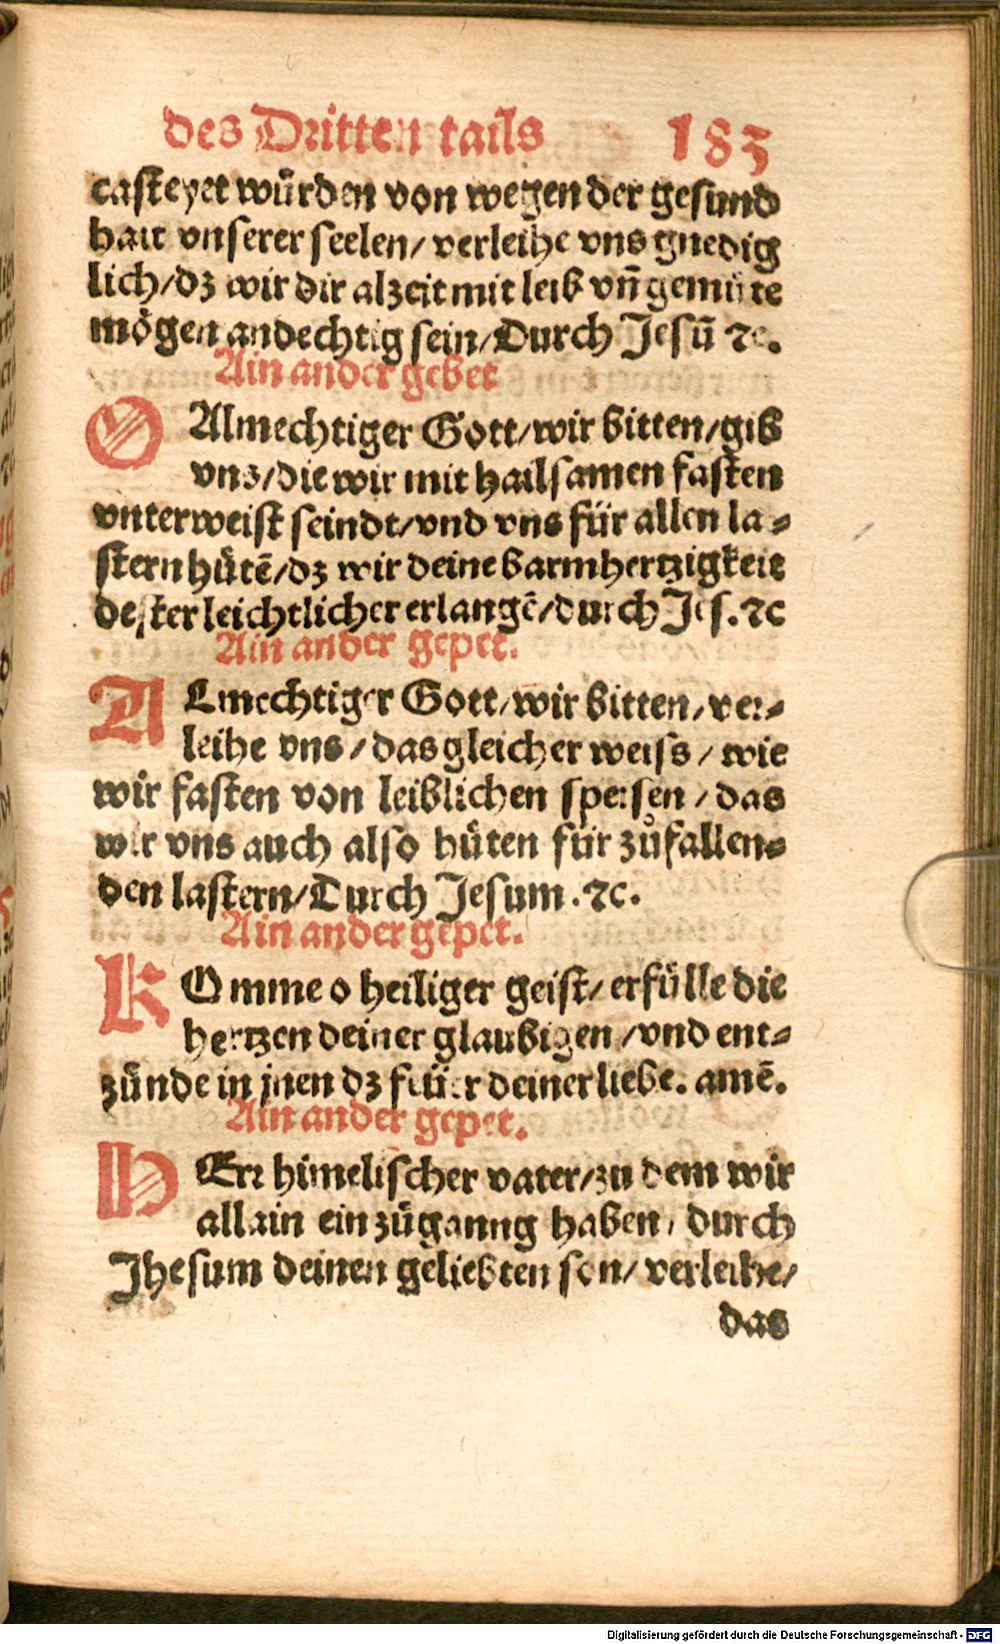 des Dritten tails 183
casteyet würden von wegen der gesund
hait vnserer seelen/ verleihe vns gnedig
lich/dz wir dir alzeit mit leib vñ gemüte
mögen andechtig sein/Durch Jesū ⁊c.
Ain ander gebet
O Almechtiger Gott/wir bitten/gib
vns/die wir mit hailsamen fasten
vnterweist seindt/vnd vns für allen la⸗
stern hütē/dz wir deine barmhertzigkeit
dester leichtlicher erlangē/durch Jes. ⁊c
Ain ander gepet.
ALmechtiger Gott/wir bitten/ver⸗
leihe vns/das gleicher weiss/wie
wir fasten von leiblichen speisen/das
wir vns auch also hüten für zůfallen⸗
den lastern/Durch Jesum.⁊c.
Ain ander gepet.
KOmme o heiliger geist/erfülle die
hertzen deiner glaubigen/vnd ent⸗
zünde in jnen dz feüer deiner liebe. amē.
Ain ander gepet.
HErr himelischer vater/zu dem wir
allain ein zůganng haben/durch
Jhesum deinen geliebten son/verleihe/
das
Digitalisierung gefördert durch die Deutsche Forschungsgemeinschaft - DFG